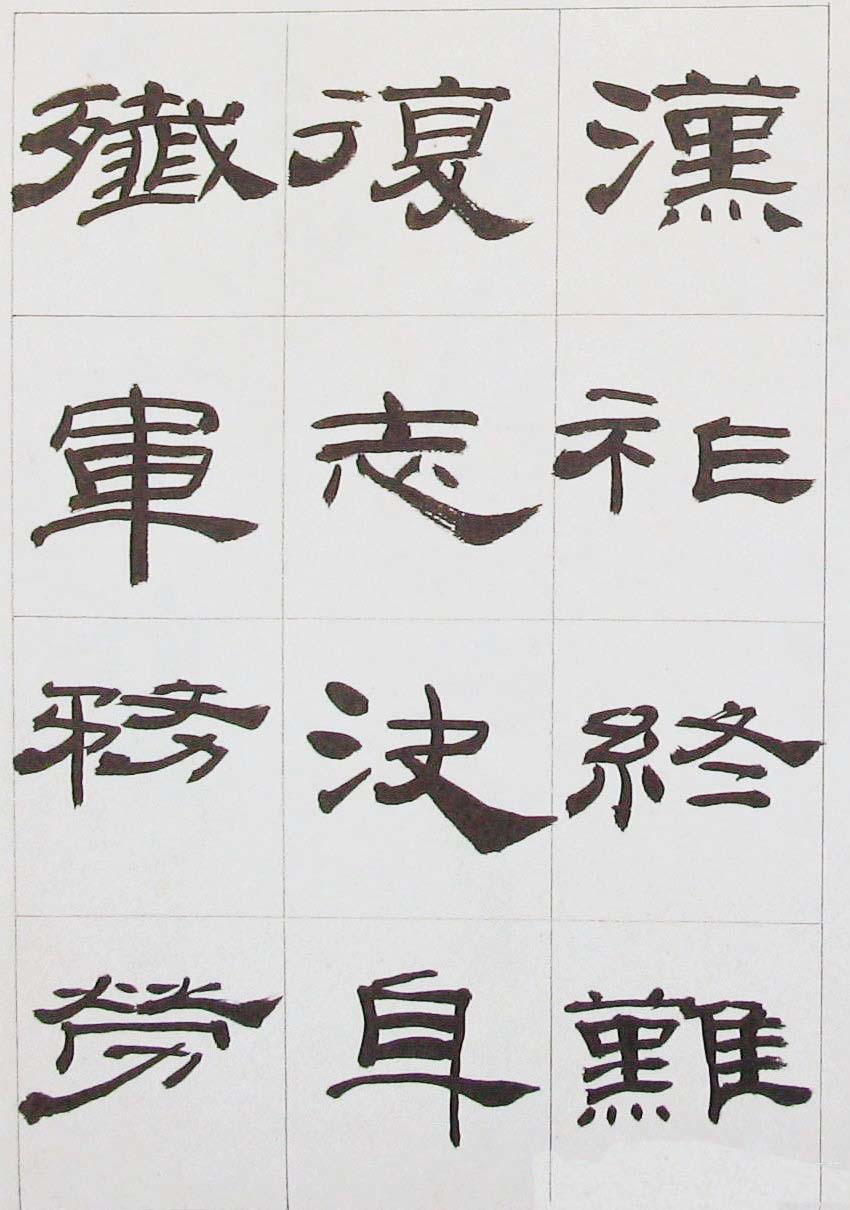 漢祚終難
復志決身
殲軍務勞